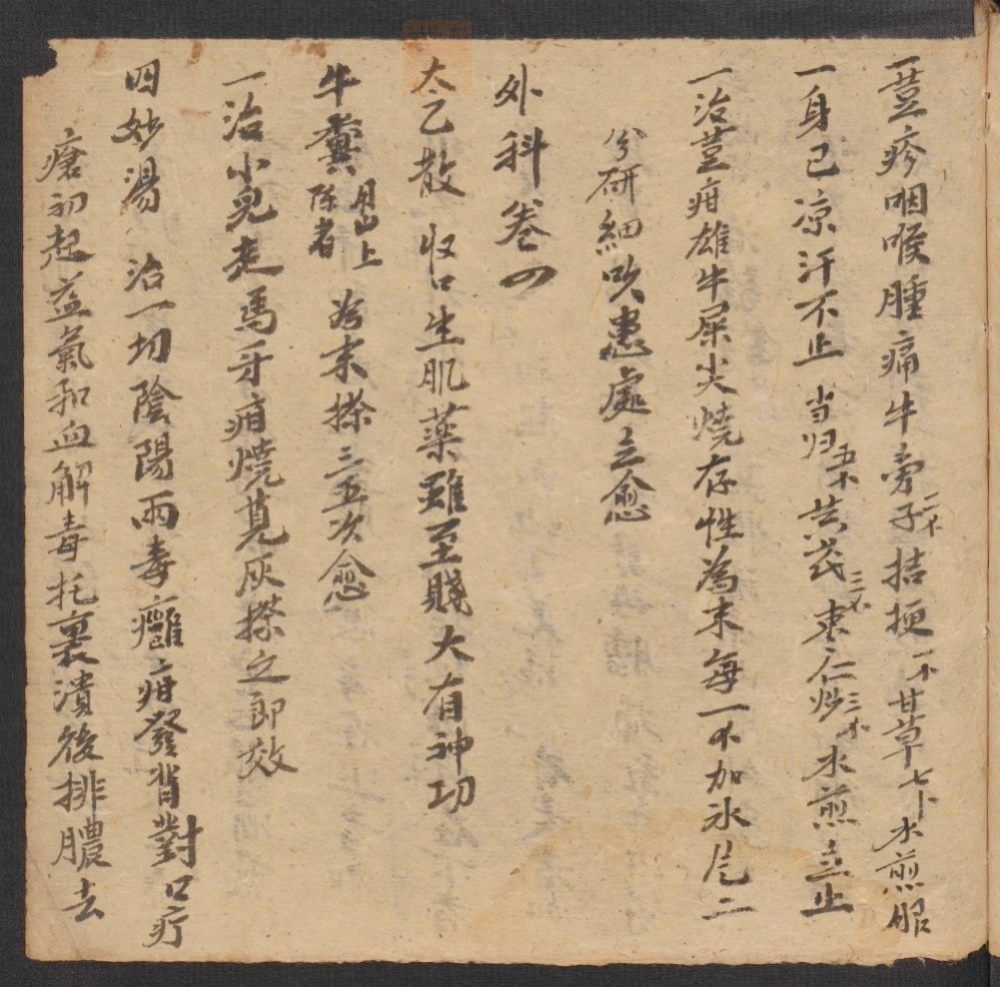 一荳疹咽喉腫痛牛旁子二不桔梗一不甘草七卜水煎服
一身已凉汗不止 当归五不 芪 三不 枣仁炒三不水煎立止
一治荳疳雄牛屎尖燒存性為末每一不加冰片二
分研細吹患處立愈
外科卷四
太乙散 收口生肌藥雖至賤大有神功
牛糞 上陈者 為末搽三五次愈
一治小兒走馬牙疳燒 灰搽之即效
四妙湯 治一切陰陽兩毒癰疳發背對口疔
瘡初起益氣和血解毒托裏潰後排膿去